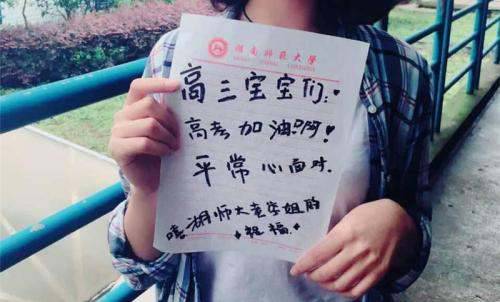 湖南師範大學
高三宝宝们:
高考加油啊!
平常心面对.
湖师大老学姐的
祝福